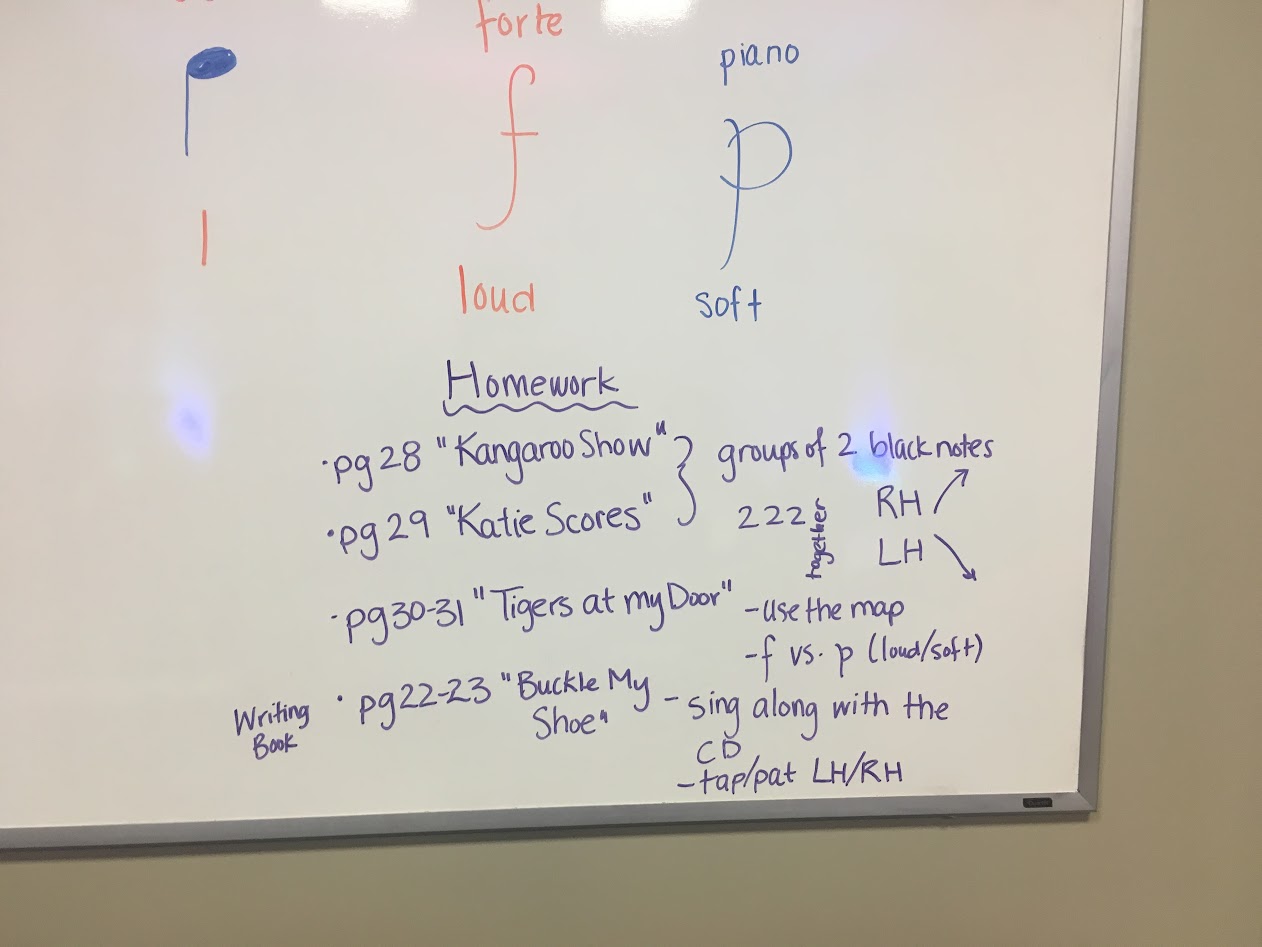 forte
piano
f
p
1
loud
soft
Homework
·pg 28 "Kangaroo Show" } groups of 2 black notes
·pg 29 "Katie Scores" 222 together RH ↗
LH ↘
·pg 30-31 "Tigers at my Door" -use the map
-f vs. p (loud/soft)
Writing Book · pg 22-23 "Buckle My Shoe" - sing along with the CD
-tap/pat LH/RH